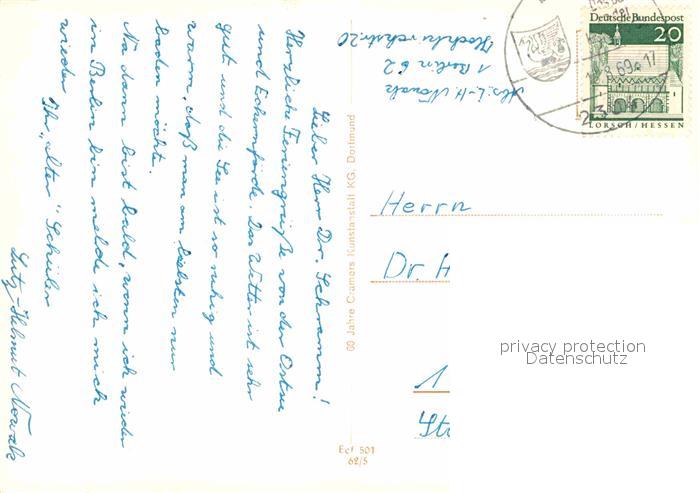 Lieber Herr Dr. Schramm!
Herzliche Feriengrüße von der Ostsee
und Eckernförde. Das Wetter ist sehr
gut und die See ist so ruhig und
warm, daß man am liebsten nur
baden möchte.
Na dann bis bald, wenn ich wieder
in Berlin bin melde ich mich
wieder
Ihr "alter" Schüler
Lutz-Helmut Nowak
Abs. L.-H. Nowak
1 Berlin 62
20
60 Jahre Cramers Kunstanstalt KG. Dortmund
Ecf 501
62/5
Deutsche Bundespost
20
LORSCH/HESSEN
Herrn
Dr. H
1
Str
privacy protection
Datenschutz